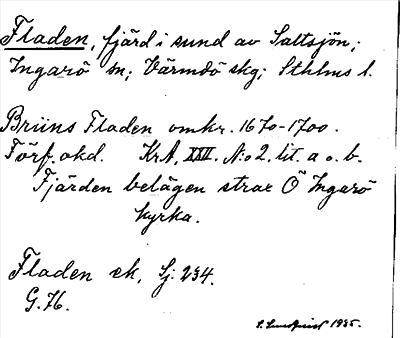 Fladen, fjärd i sund av Saltsjön;
Ingarö sn; Värmdö skg; Sthlms l.
Brüns Fladen omkr. 1670-1700.
Förf. okd. KrA, XXV. N:o 2, lit. a o. b.
Fjärden belägen strax Ö Ingarö
kyrka.
Fladen ek, Sj: 234.
G. 76.
S. 1935.